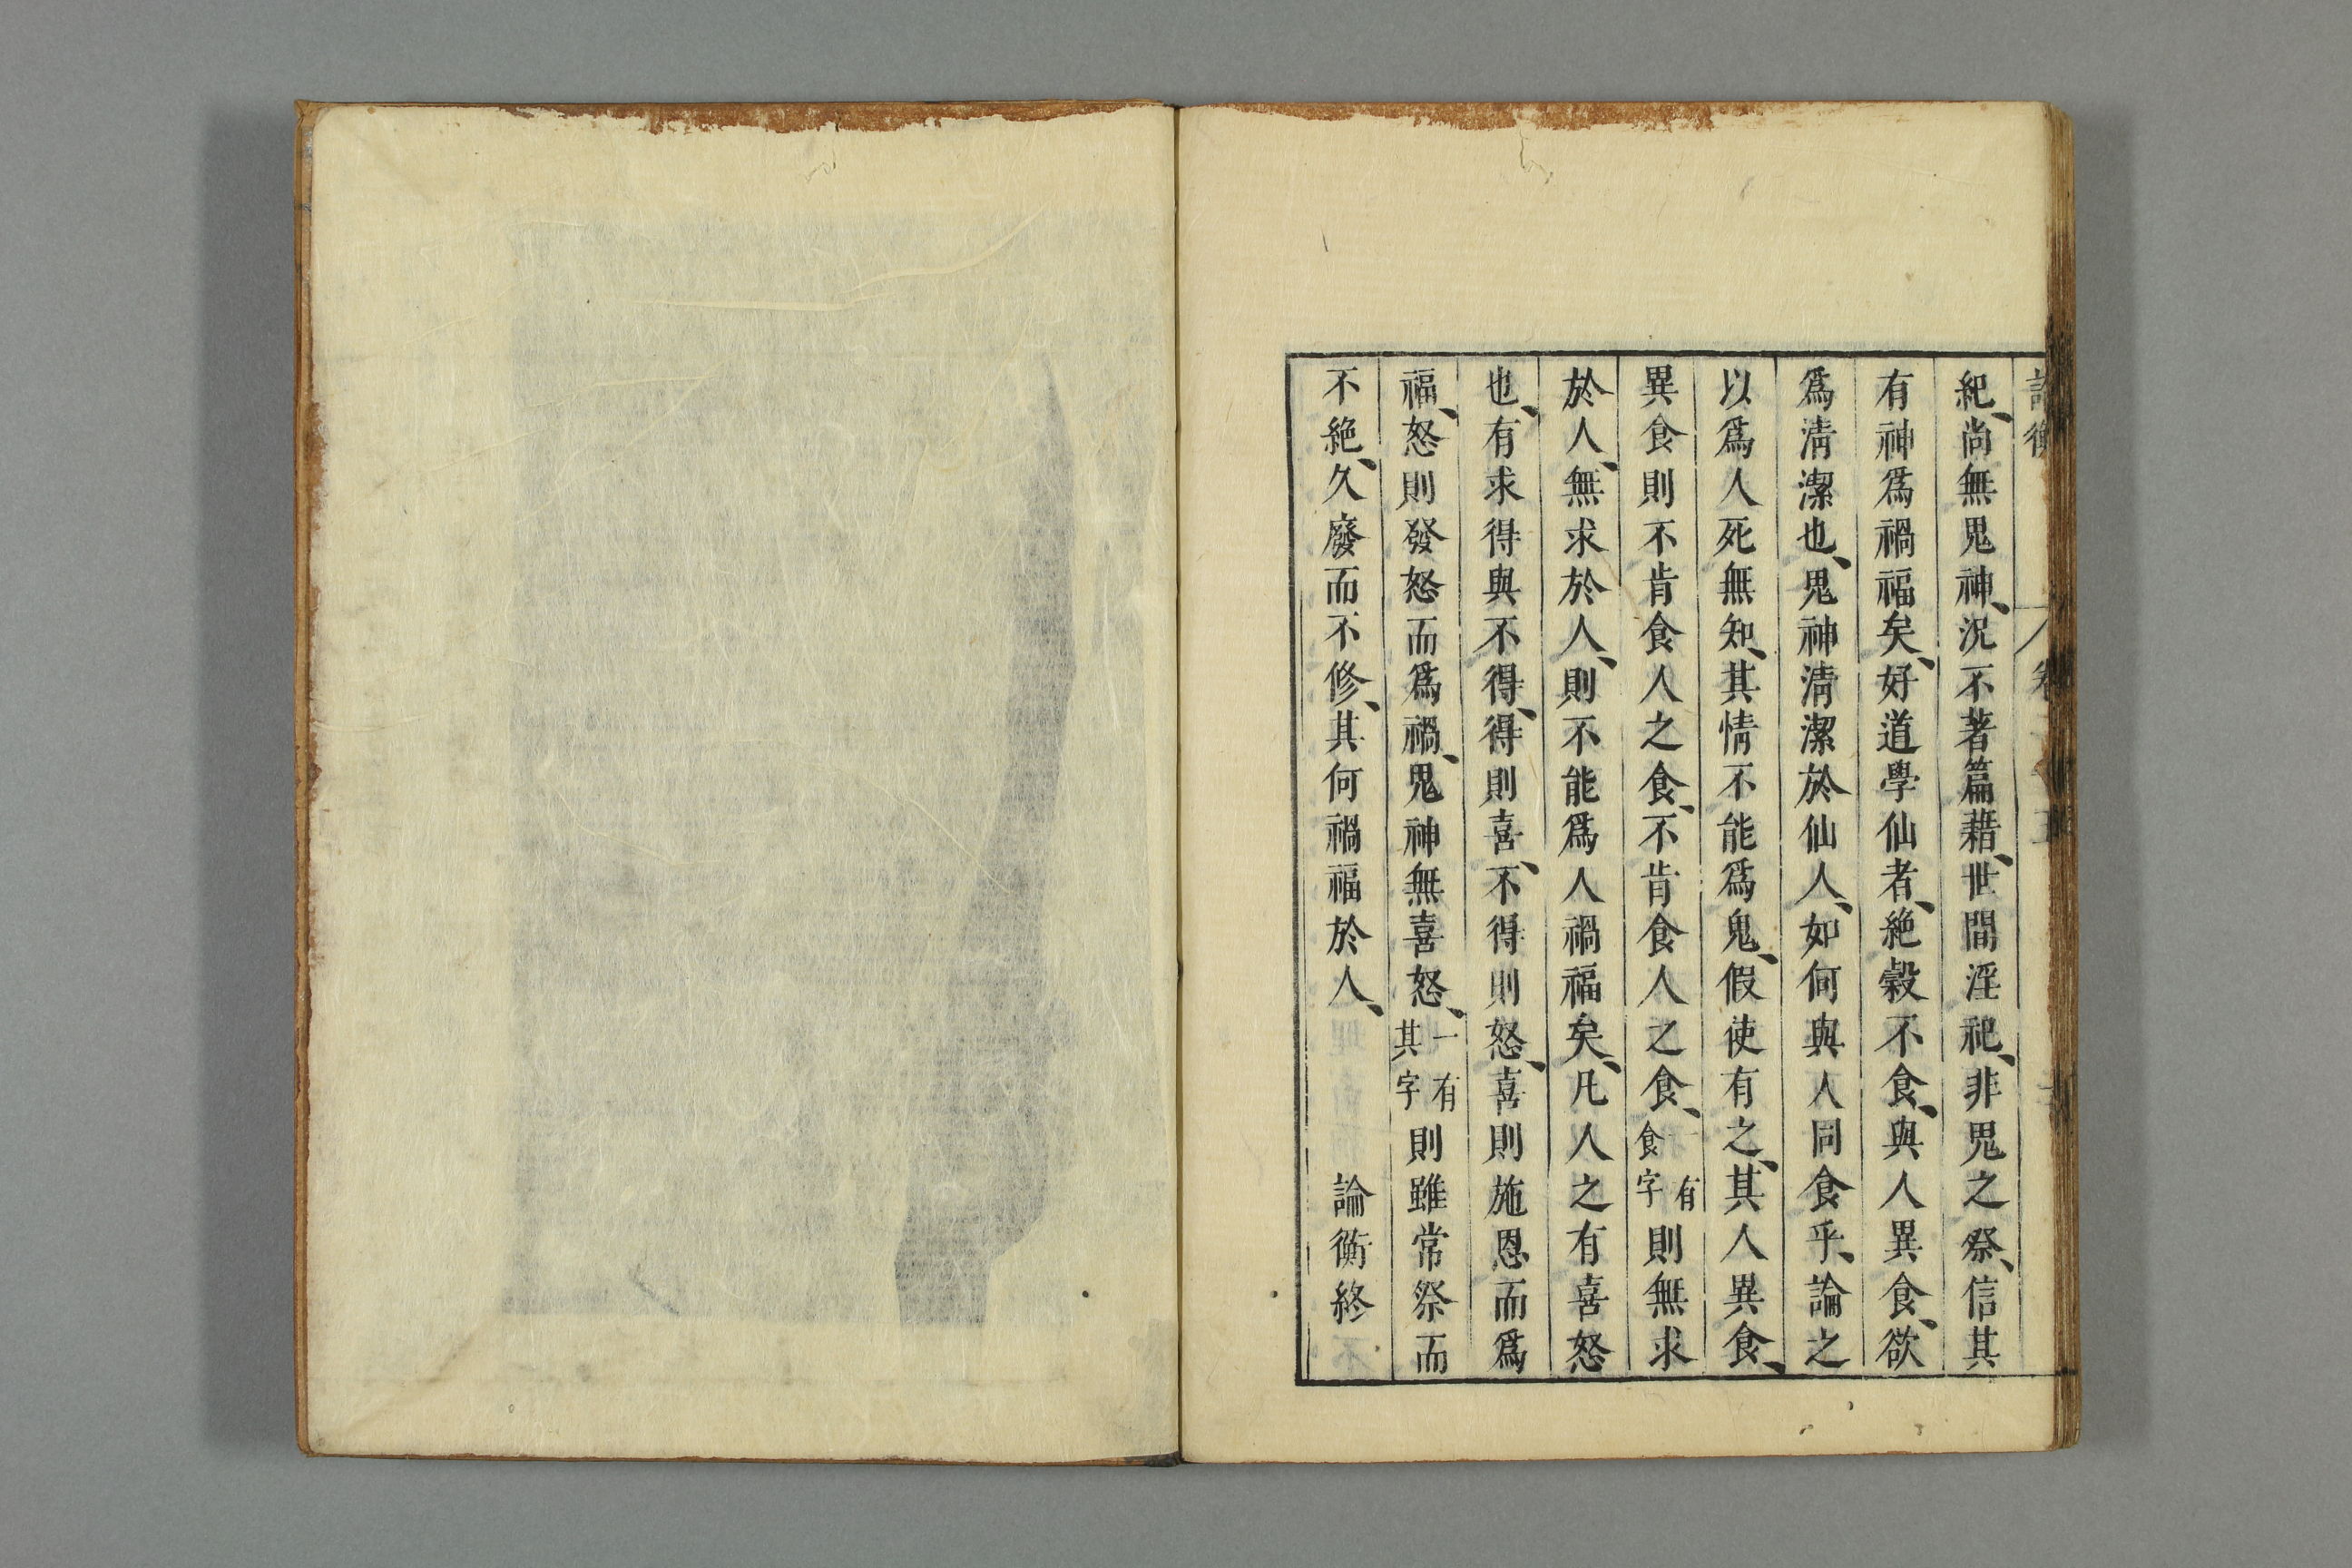 論衡 卷 五
紀、尚無鬼神、況不著篇藉、世間淫祀、非鬼之祭、信其
有神爲禍福矣、好道學仙者、絶穀不食、與人異食、欲
爲清潔也、鬼神清潔於仙人、如何與人同食乎、論之
以爲人死無知、其情不能爲鬼、假使有之、其人異食、
異食則不肯食人之食、不肯食人之食、一有食字則無求
於人、無求於人、則不能爲人禍福矣、凡人之有喜怒
也、有求得與不得、得則喜、不得則怒、喜則施恩而爲
福、怒則發怒而爲禍、鬼神無喜怒、一有其字則雖常祭而
不絶、久廢而不修、其何禍福於人、 論衡終